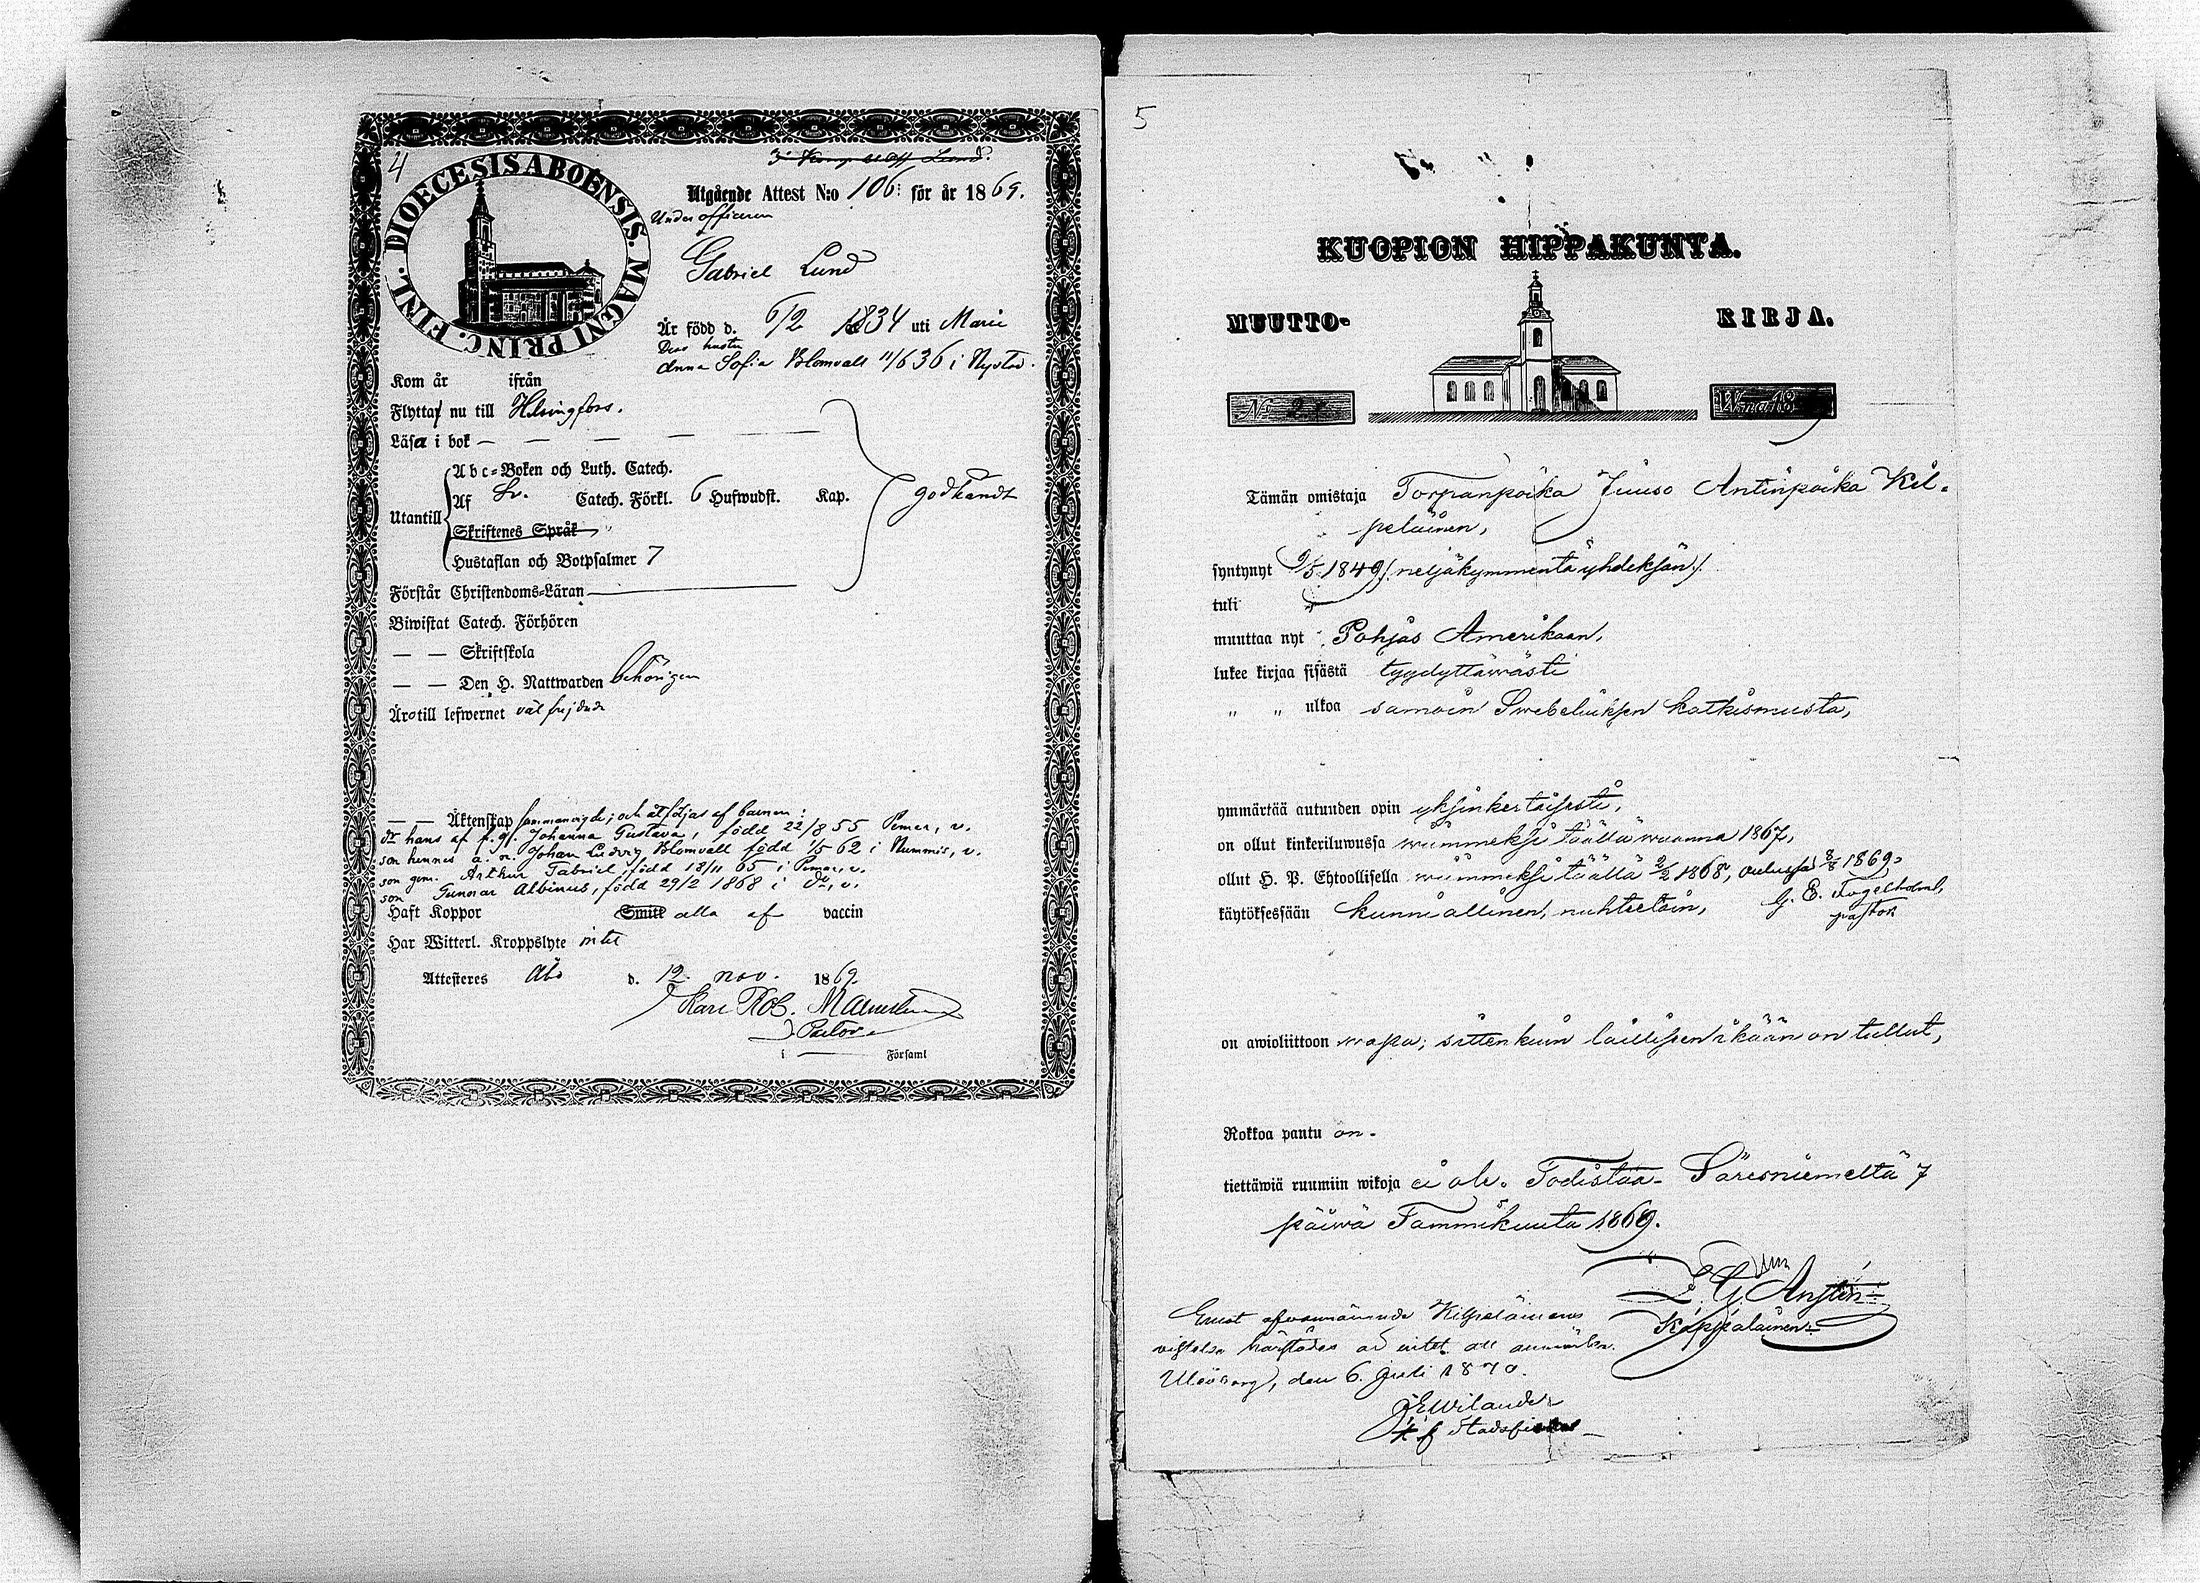 4
DIOECESIS ABOENSIS. MAGNI PRINC. FINL.
Utgående Attest N:o 106: för år 1869.
Underofficeren
Gabriel Lund
Är född d. 6/2 1834 uti Marie
Dess hustru
Anna Sofia Blomvall 11/6 36 i Nystad.
Kom år ifrån
Flyttar nu till Helsingfors.
Läsa i bok — — — — —
Abc-Boken och Luth. Catech.
Utantill
Af Sv. Catech. Förkl. 6 Hufwudst. Kap. godkändt
Skriftenes Språk
Hustaflan och Botpsalmer 7
Förstår Christendoms-Läran
Biwistat Catech. Förhören
— — Skriftskola
— — Den H. Nattwarden behörigen
Äro till lefwernet väl frejdade
— — Äktenskap sammanvigde; och åtföljas af barnen:
dr hans af f. g. Johanna Gustava, född 22/8 55 Pemar, v.
son hennes a. n. Johan Ludvig Blomvall född 1/5 62 i Nummis, v.
son gem. Arthur Gabriel, född 18/11 65 i Pemar, v.
son Gunnar Albinus, född 29/2 1868 i do, v.
Haft Koppor Smitt alla af vaccin
Har Witterl. Kroppslyte intet
Attesteres Åbo d. 12 nov. 1869
Karl Rob. Malmström
Pastor
i — Församl
5
KUOPION HIPPAKUNTA.
MUUTTO- KIRJA.
No W:na 18
Tämän omistaja Torpanpoika Juuso Antinpoika Kil-
peläinen,
syntynyt 9/5 1849 /:neljäkymmentä yhdeksän:/
tuli "
muuttaa nyt Pohjas Amerikaan,
lukee kirjaa sisästä tyydyttäwästi
" " ulkoa samoin Swebeliuksen katkismusta,
ymmärtää autuuden opin yksinkertaisesti,
on ollut kinkeriluwussa wiimmeksi täällä wuonna 1867,
ollut H. P. Ehtoollisella wiimmeksi täällä 2/2 1868, Oulussa 8/8 1869,
G. E. Fogelholm,
pastor
käytöksessään kunniallinen, nuhteetoin,
on awioliittoon wapa, sittenkuin laillisen ikään on tullut,
Rokkoa pantu on.
tiettäwiä ruumiin wikoja ei ole. Todistaa Säresniemeltä 7
päiwä Tammikuuta 1869.
Kappalainen
Emot ofvannämnde Kilpeläinens
vistelse härstädes är intet att anmärka.
Uleåborg, den 6. Juli 1870.
JE Wilander
t. f. Stadsfiskal